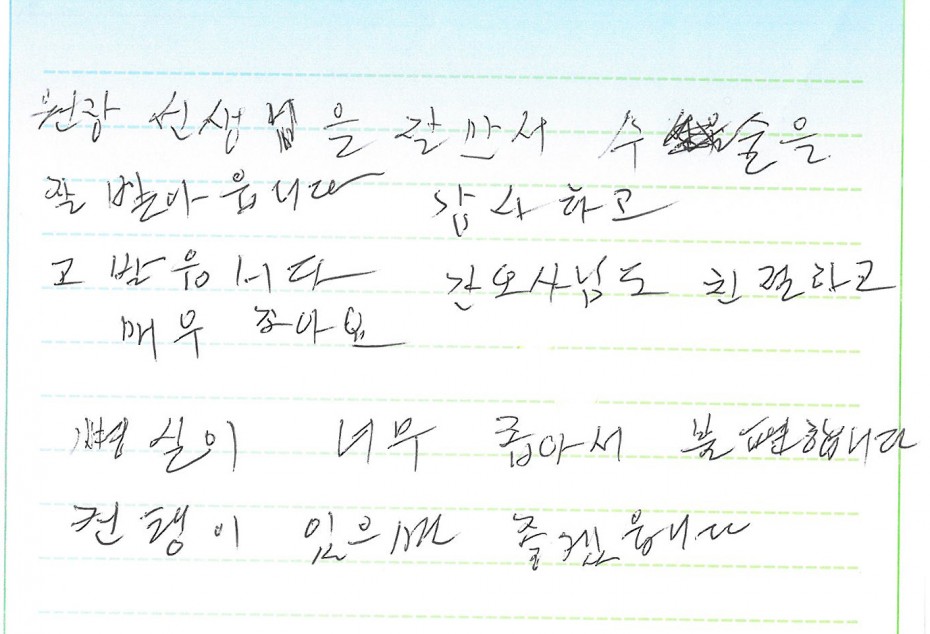 원장 선생님을 잘 만서 수 술을
잘 받아웁니다 감사하고
고맙웁니다 간오사님도 친절라고
매우 조아요
병실이 너무 좁아서 불편합니다
컨탱이 있으면 졸겠웁니다